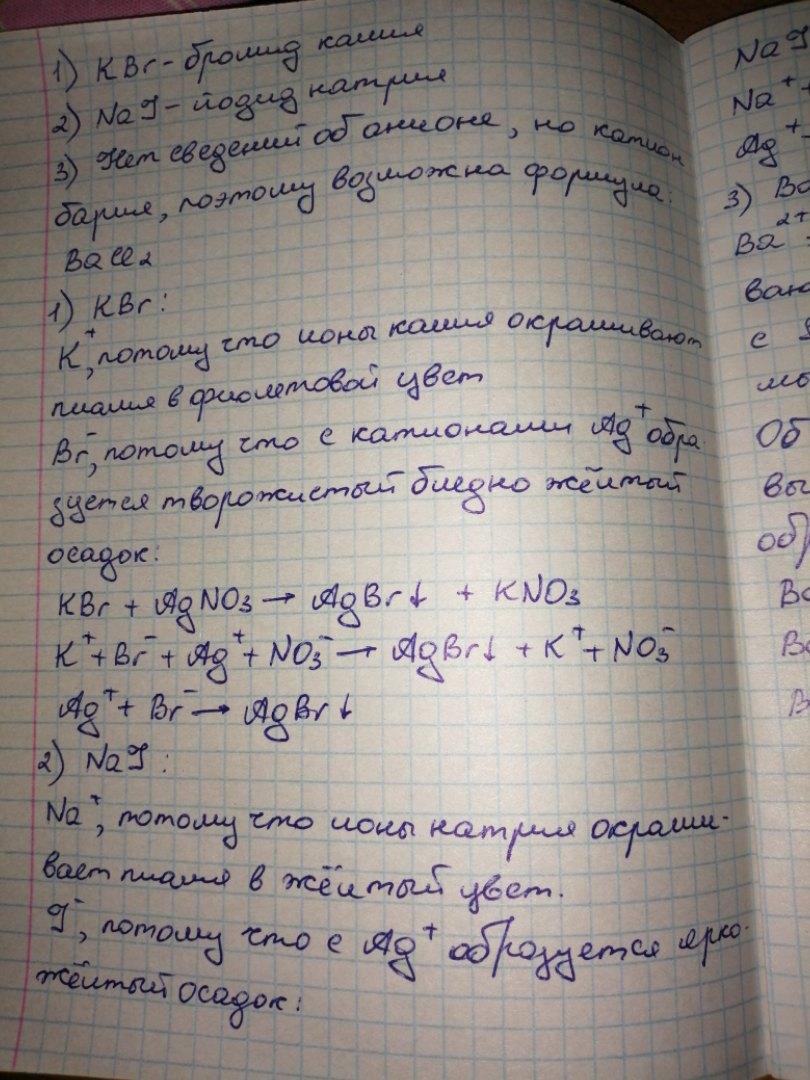 1) KBr - бромид калия
2) NaI - йодид натрия
3) Нет сведений об анионе, но катион
бария, поэтому возможна формула:
BaCl₂
1) KBr:
K⁺, потому что ионы калия окрашивают
пламя в фиолетовой цвет
Br⁻, потому что с катионами Ag⁺ обра-
зуется творожистый бледно жёлтый
осадок:
KBr + AgNO₃ → AgBr↓ + KNO₃
K⁺ + Br⁻ + Ag⁺ + NO₃⁻ → AgBr↓ + K⁺ + NO₃⁻
Ag⁺ + Br⁻ → AgBr↓
2) NaI:
Na⁺, потому что ионы натрия окраши-
вает пламя в жёлтый цвет.
I⁻, потому что с Ag⁺ образуется ярко-
жёлтый осадок:
NaI
Na⁺ +
Ag⁺
3) Ba
Ba²⁺
ваю
с
мы
Об
вы
обр
Ba
Ba
B